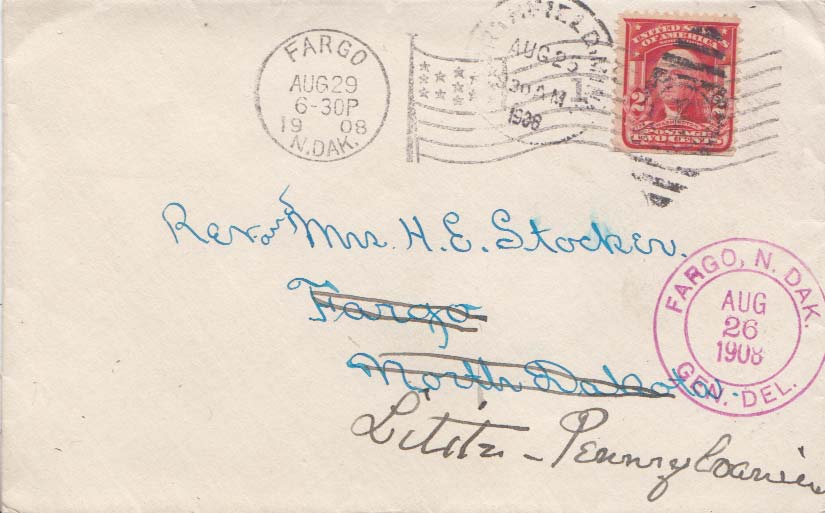 FARGO
AUG 29
6-30P
19 08
N. DAK.
AUG 25
30 AM
1908
1
UNITED STATES
OF AMERICA
2
POSTAGE
TWO CENTS
Rev. and Mrs. H. E. Stocker.
Fargo
North Dakota.
Lititz - Pennsylvania
FARGO, N. DAK.
AUG
26
1908
GEN. DEL.